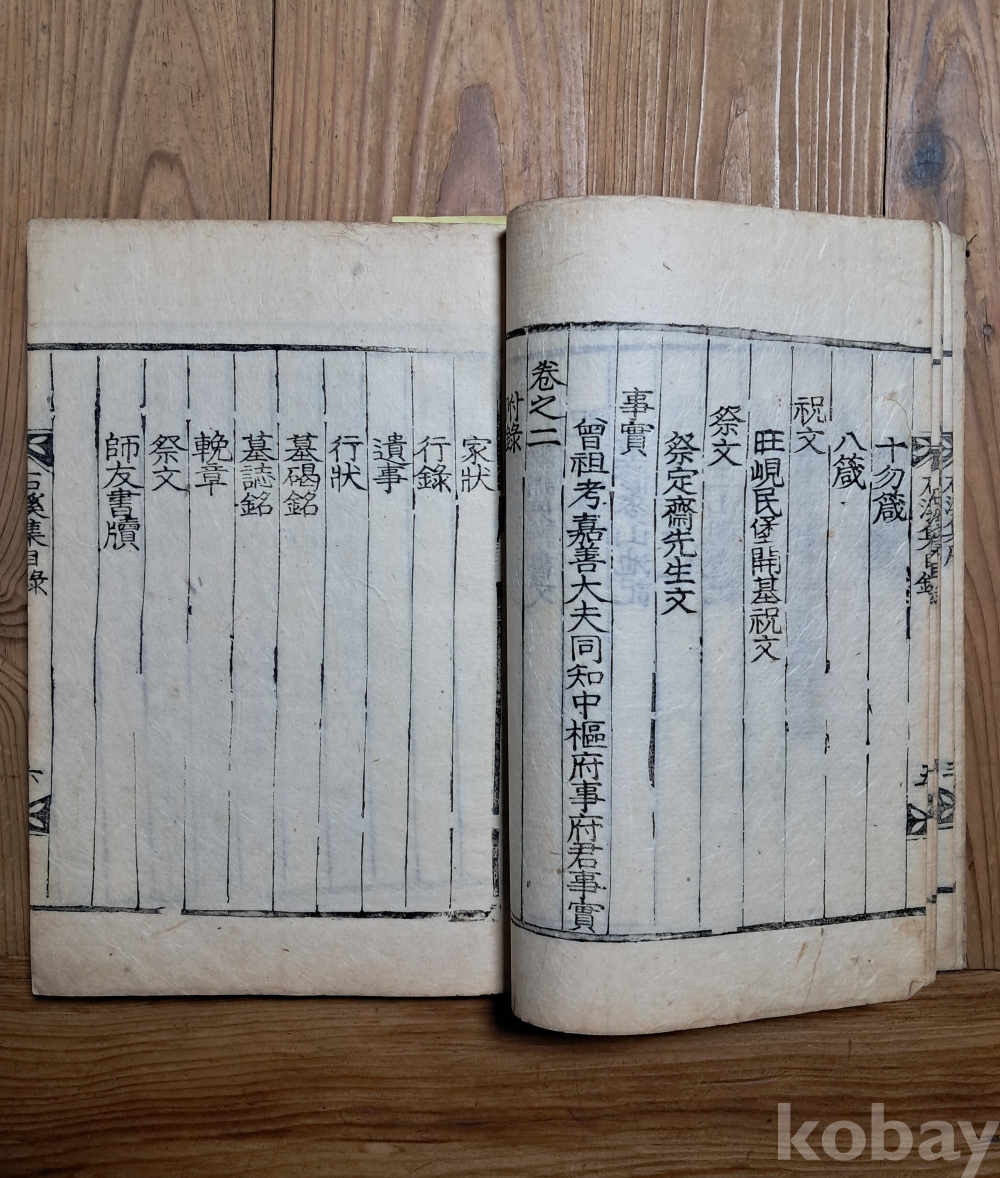 十勿箴
八箴
祝文
旺峴民堡開基祝文
祭文
祭定齋先生文
事實
曾祖考嘉善大夫同知中樞府事府君事實
卷之二
附錄
家狀
行錄
遺事
行狀
墓碣銘
墓誌銘
輓章
祭文
師友書牘
集目錄
六
kobay